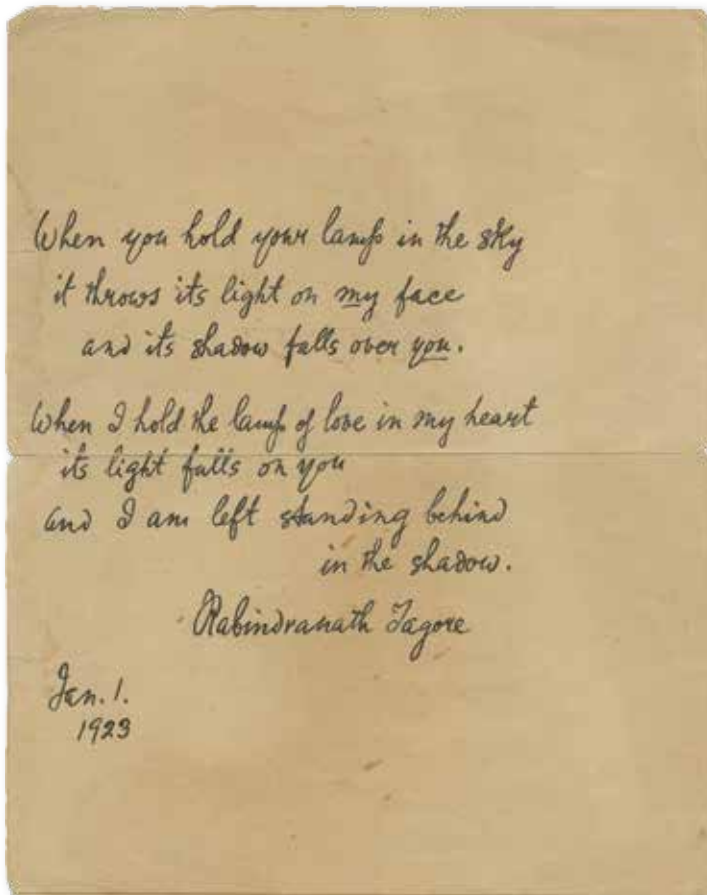 When you hold your lamp in the sky
it throws its light on my face
and its shadow falls over you.
When I hold the lamp of love in my heart
its light falls on you
and I am left standing behind
in the shadow.
Rabindranath Tagore
Jan. 1.
1923